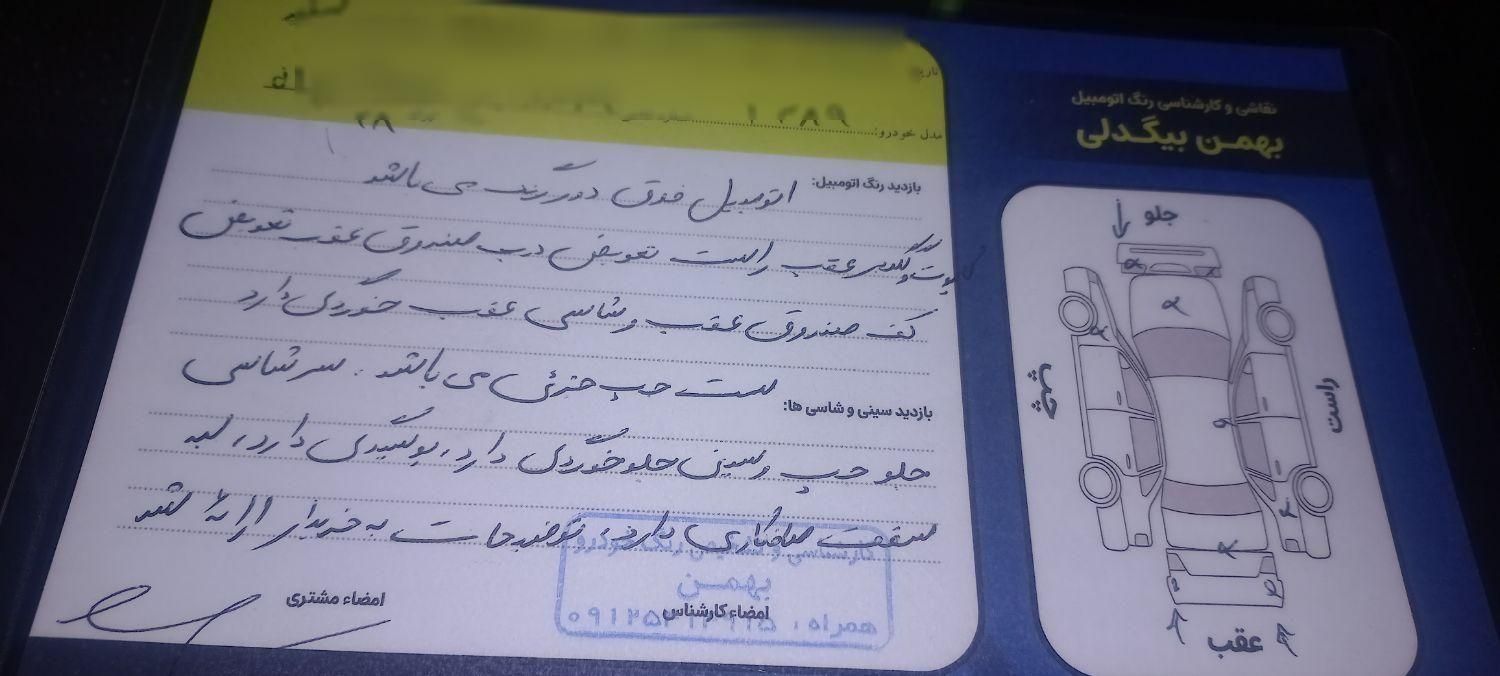 نقاشی و کارشناسی رنگ اتومبیل
بهمن بیگدلی
تاریخ
مدل خودرو: ۱۳۸۹
۲۸
بازدید رنگ اتومبیل: اتومبیل فوق دور رنگ می باشد
کاپوت و گلگیر عقب راست تعویض درب صندوق عقب تعویض
کف صندوق عقب و شاسی عقب خوردگی دارد
بازدید سینی و شاسی ها: سمت چپ جزئی می باشد . سر شاسی
جلو چپ و سینی جلو خوردگی دارد، پوسیدگی دارد، لبه
سقف صافکاری دارد، توضیحات به خریدار ارائه شد
کارشناسی و تشخیص رنگ خودرو
بهمن
امضاء کارشناس
امضاء مشتری
همراه:
جلو
چپ
راست
عقب